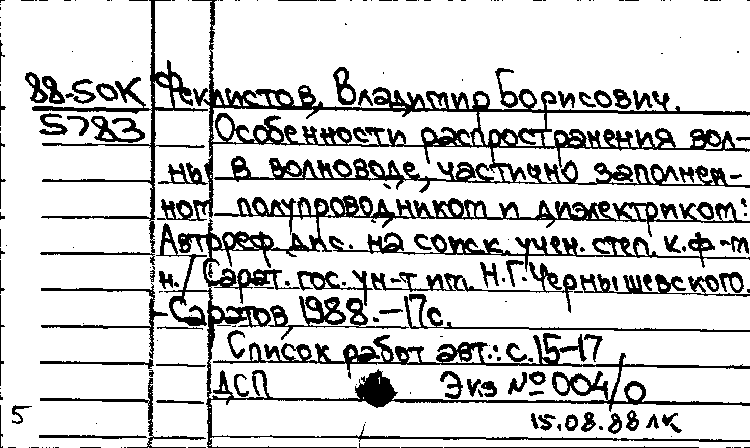 88-50К Феклистов, Владимир Борисович.
5783 Особенности распространения вол-
ны в волноводе, частично заполнен-
ном полупроводником и диэлектриком:
Автореф. дис. на соиск. учен. степ. к.ф-м
н./ Сарат. гос. ун-т им. Н.Г.Чернышевского.
-Саратов 1988.-17с.
Список работ авт.: с.15-17
ДСП Экз №004/0
5 15.08.88 лк